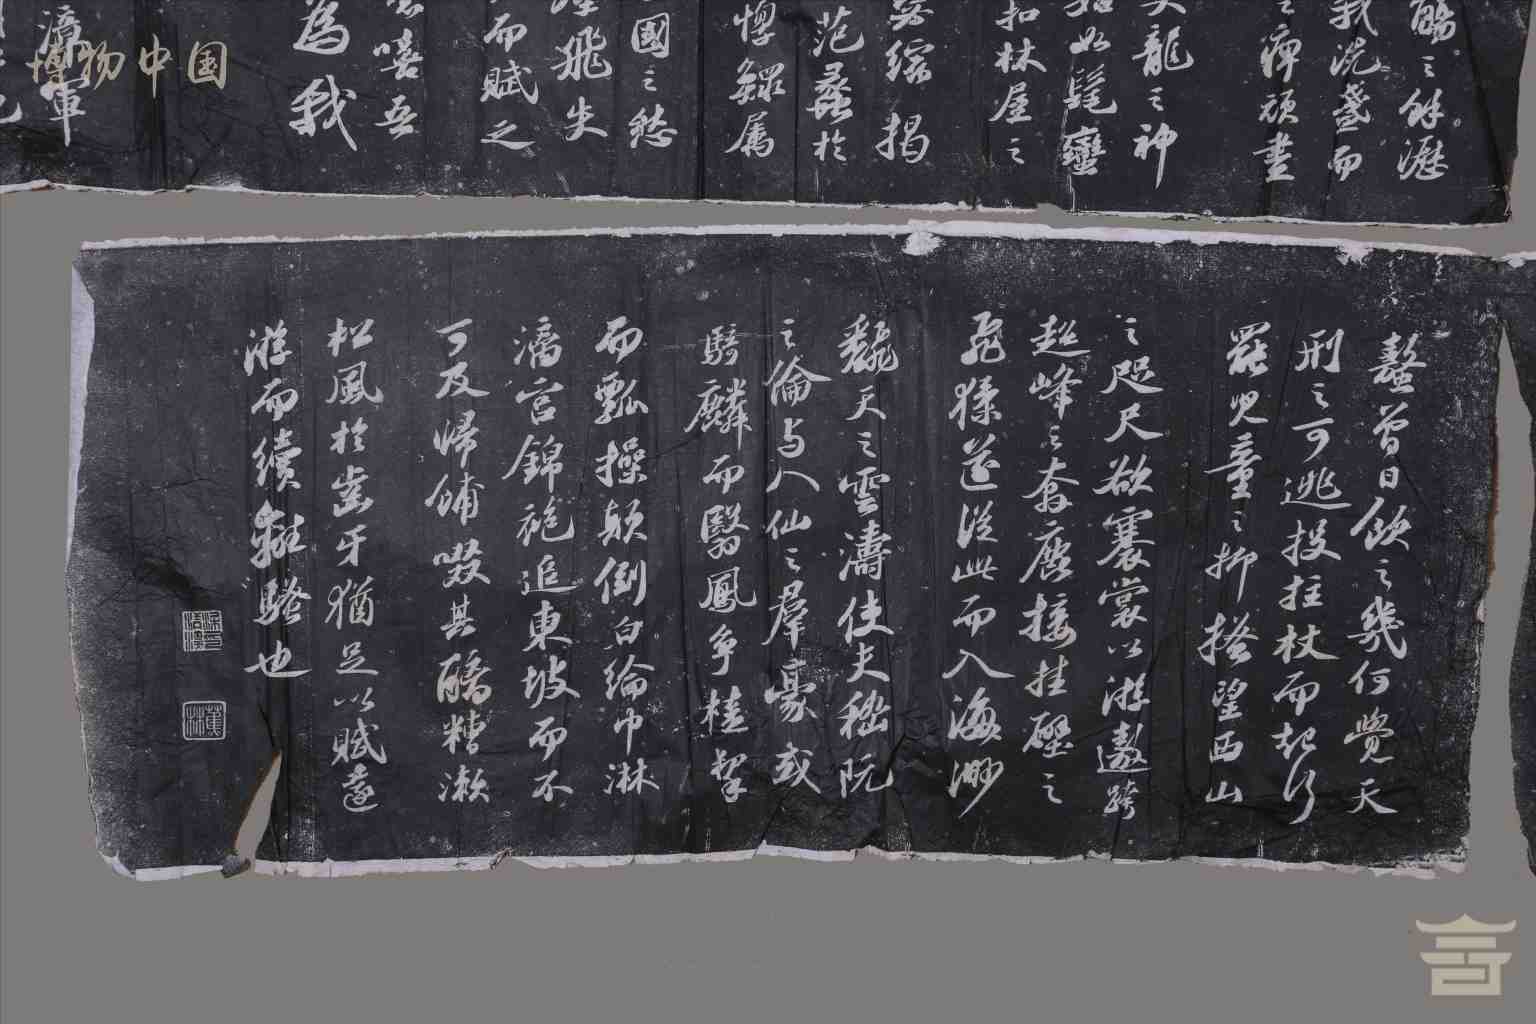 觴之餘瀝
我洗盞而
之痺頑盡
龍之神
始如髦蠻
扣林屋之
縮揭
范蠡於
惸鰥屬
國之愁
飛失
而賦之
嘻吾
為我
博物中国
螯曾日飲之幾何覺天
刑之可逃投拄杖而起行
罷兒童之抑搔望西山
之咫尺欲褰裳以游遨跨
超峰之奔鹿接挂壁之
飛猱遂從此而入海渺
飜天之雲濤使夫嵇阮
之倫与八仙之羣豪或
騎麟而翳鳳爭榼挈
而瓢操顛倒白綸巾淋
漓宮錦袍追東坡而不
可及歸餔啜其醨糟漱
松風於齒牙猶足以賦遠
游而續離騷也